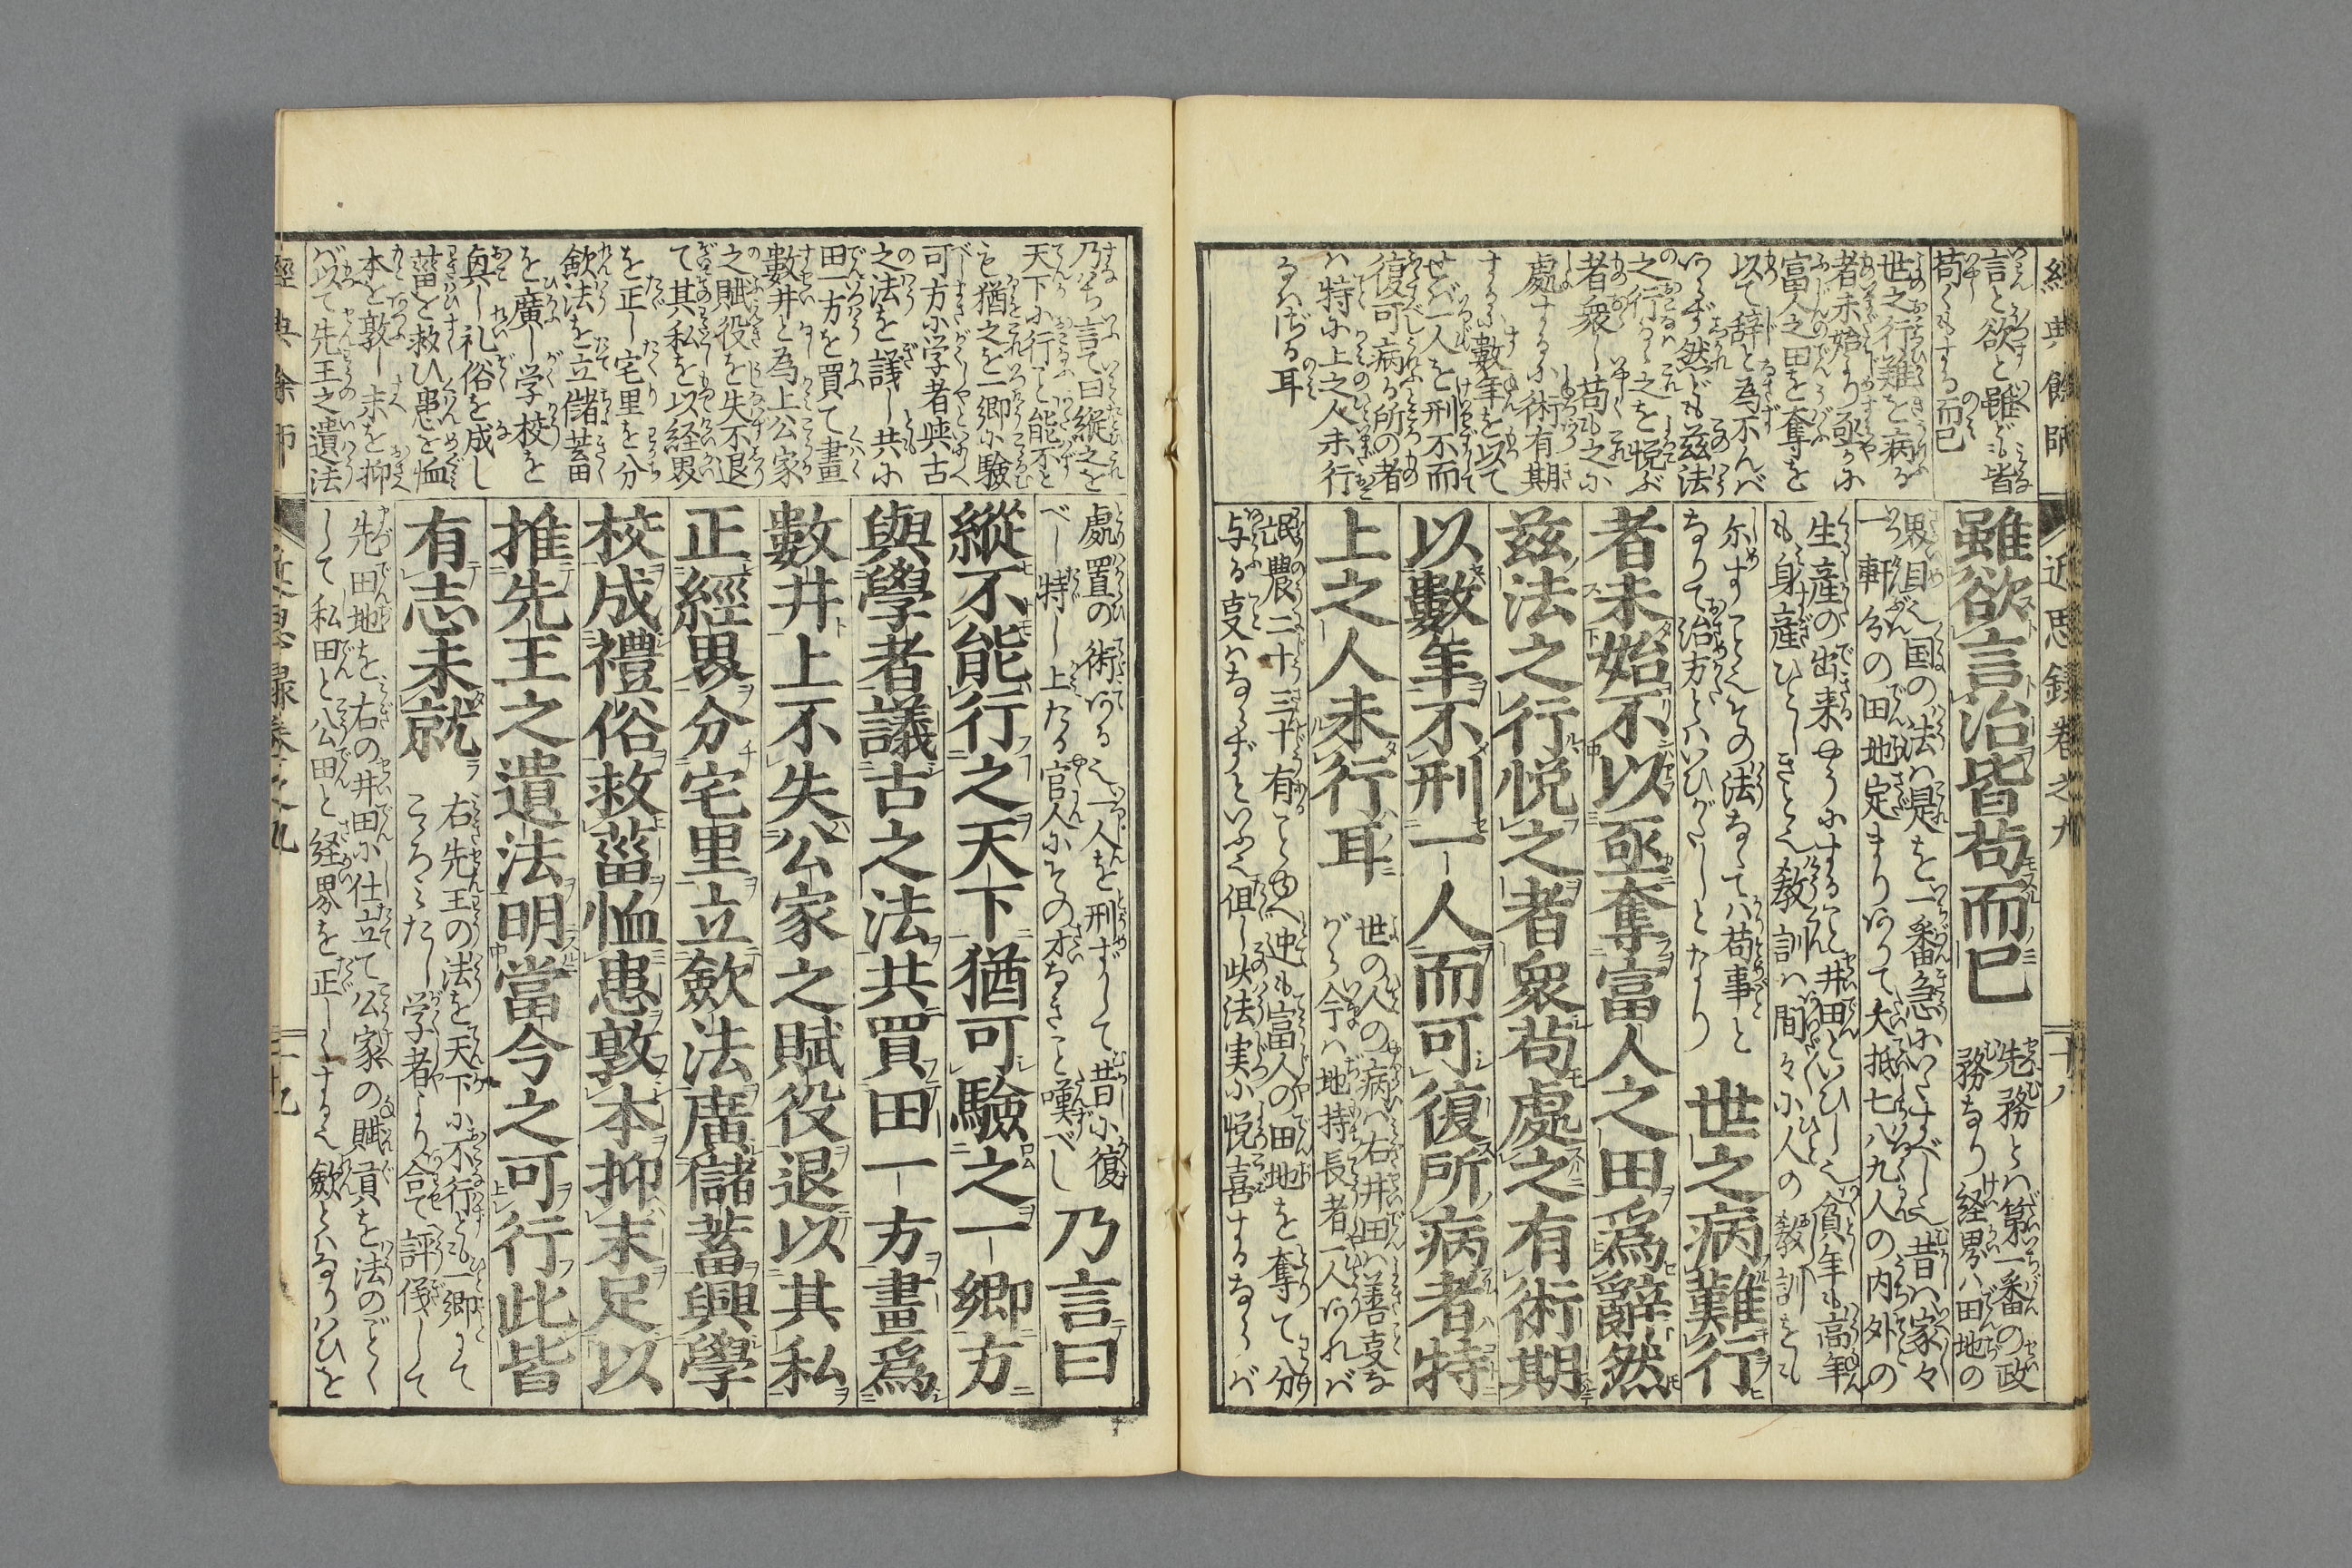 經典餘師
近思録巻之九
十八
言と欲と雖ども皆
苟くもする而已
世之行難を病る
者未始より亟かに
富人之田を奪を
以て辞と為不んば
あらず然ども茲法
之行るゝ之を悦ぶ
者衆し苟も之に
處するに術有期
するに數年を以て
せば一人を刑不而
復可病る所の者
ハ特に上之人未行
るはざる耳
雖欲言治皆苟而已
先務とハ第一番の政
務なり経界ハ田地の
一軒分の田地定まりありて大抵七八九人の内外の
生産の出来やうにすること井田といひし也貧年も高年
も身産ひとしきこと也教訓ハ間々に人の教訓をも
なりて治方とハいひがたしとなり
世之病難行
者未始不以亟奪富人之田爲辭然
茲法之行悦之者衆苟處之有術期
以數年不刑一人而可復所病者特
上之人未行耳
世の人の病ハ右井田ハ善事な
がら今ハ地持長者一人あれバ
与る事ハならずといふ也但し此法実に悦喜するならバ
乃ち言て曰縦之を
天下に行こと能不と
も猶之を一郷に驗
可方に学者與古
之法を議し共に
田一方を買て畫
數井と為上公家
之賦役を失不退
て其私を以経界
を正し宅里を分
斂法を立儲蓄
を廣し学校を
興し礼俗を成し
菑を救ひ患を恤
本を敦し末を抑
ば以て先王之遺法
處置の術ある也一人を刑ずして昔に復
べし特し上たる官人にその才なきこと嘆べし
乃言曰
縱不能行之天下猶可驗之一鄉方
與學者議古之法共買田一方畫爲
數井上不失公家之賦役退以其私
正經界分宅里立斂法廣儲蓄興學
校成禮俗救菑恤患敦本抑末足以
推先王之遺法明當今之可行此皆
有志未就
右先王の法を天下に不行とも一郷にて
こゝろミたし学者より合て評儀して
先田地を右の井田に仕立て公家の賦貢を法のごとく
して私田と公田と経界を正しくする也斂とハなりハひを